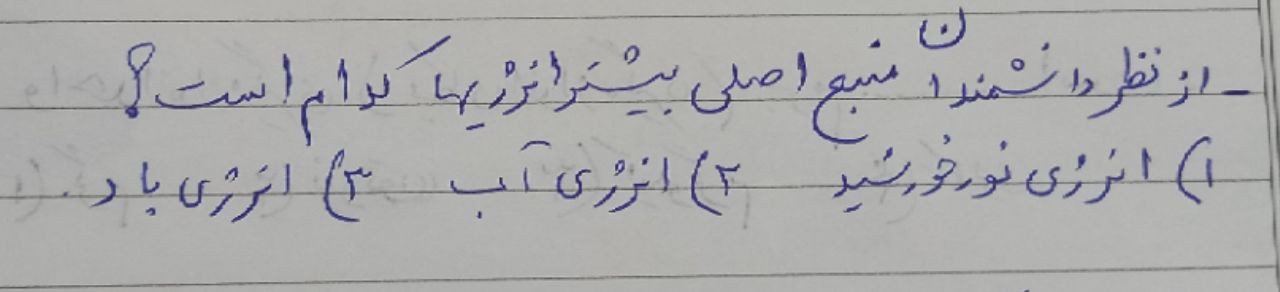 - از نظر دانشمندان منبع اصلی بیشتر انرژیها کدام است؟
۱) انرژی نور خورشید ۲) انرژی آب ۳) انرژی باد.